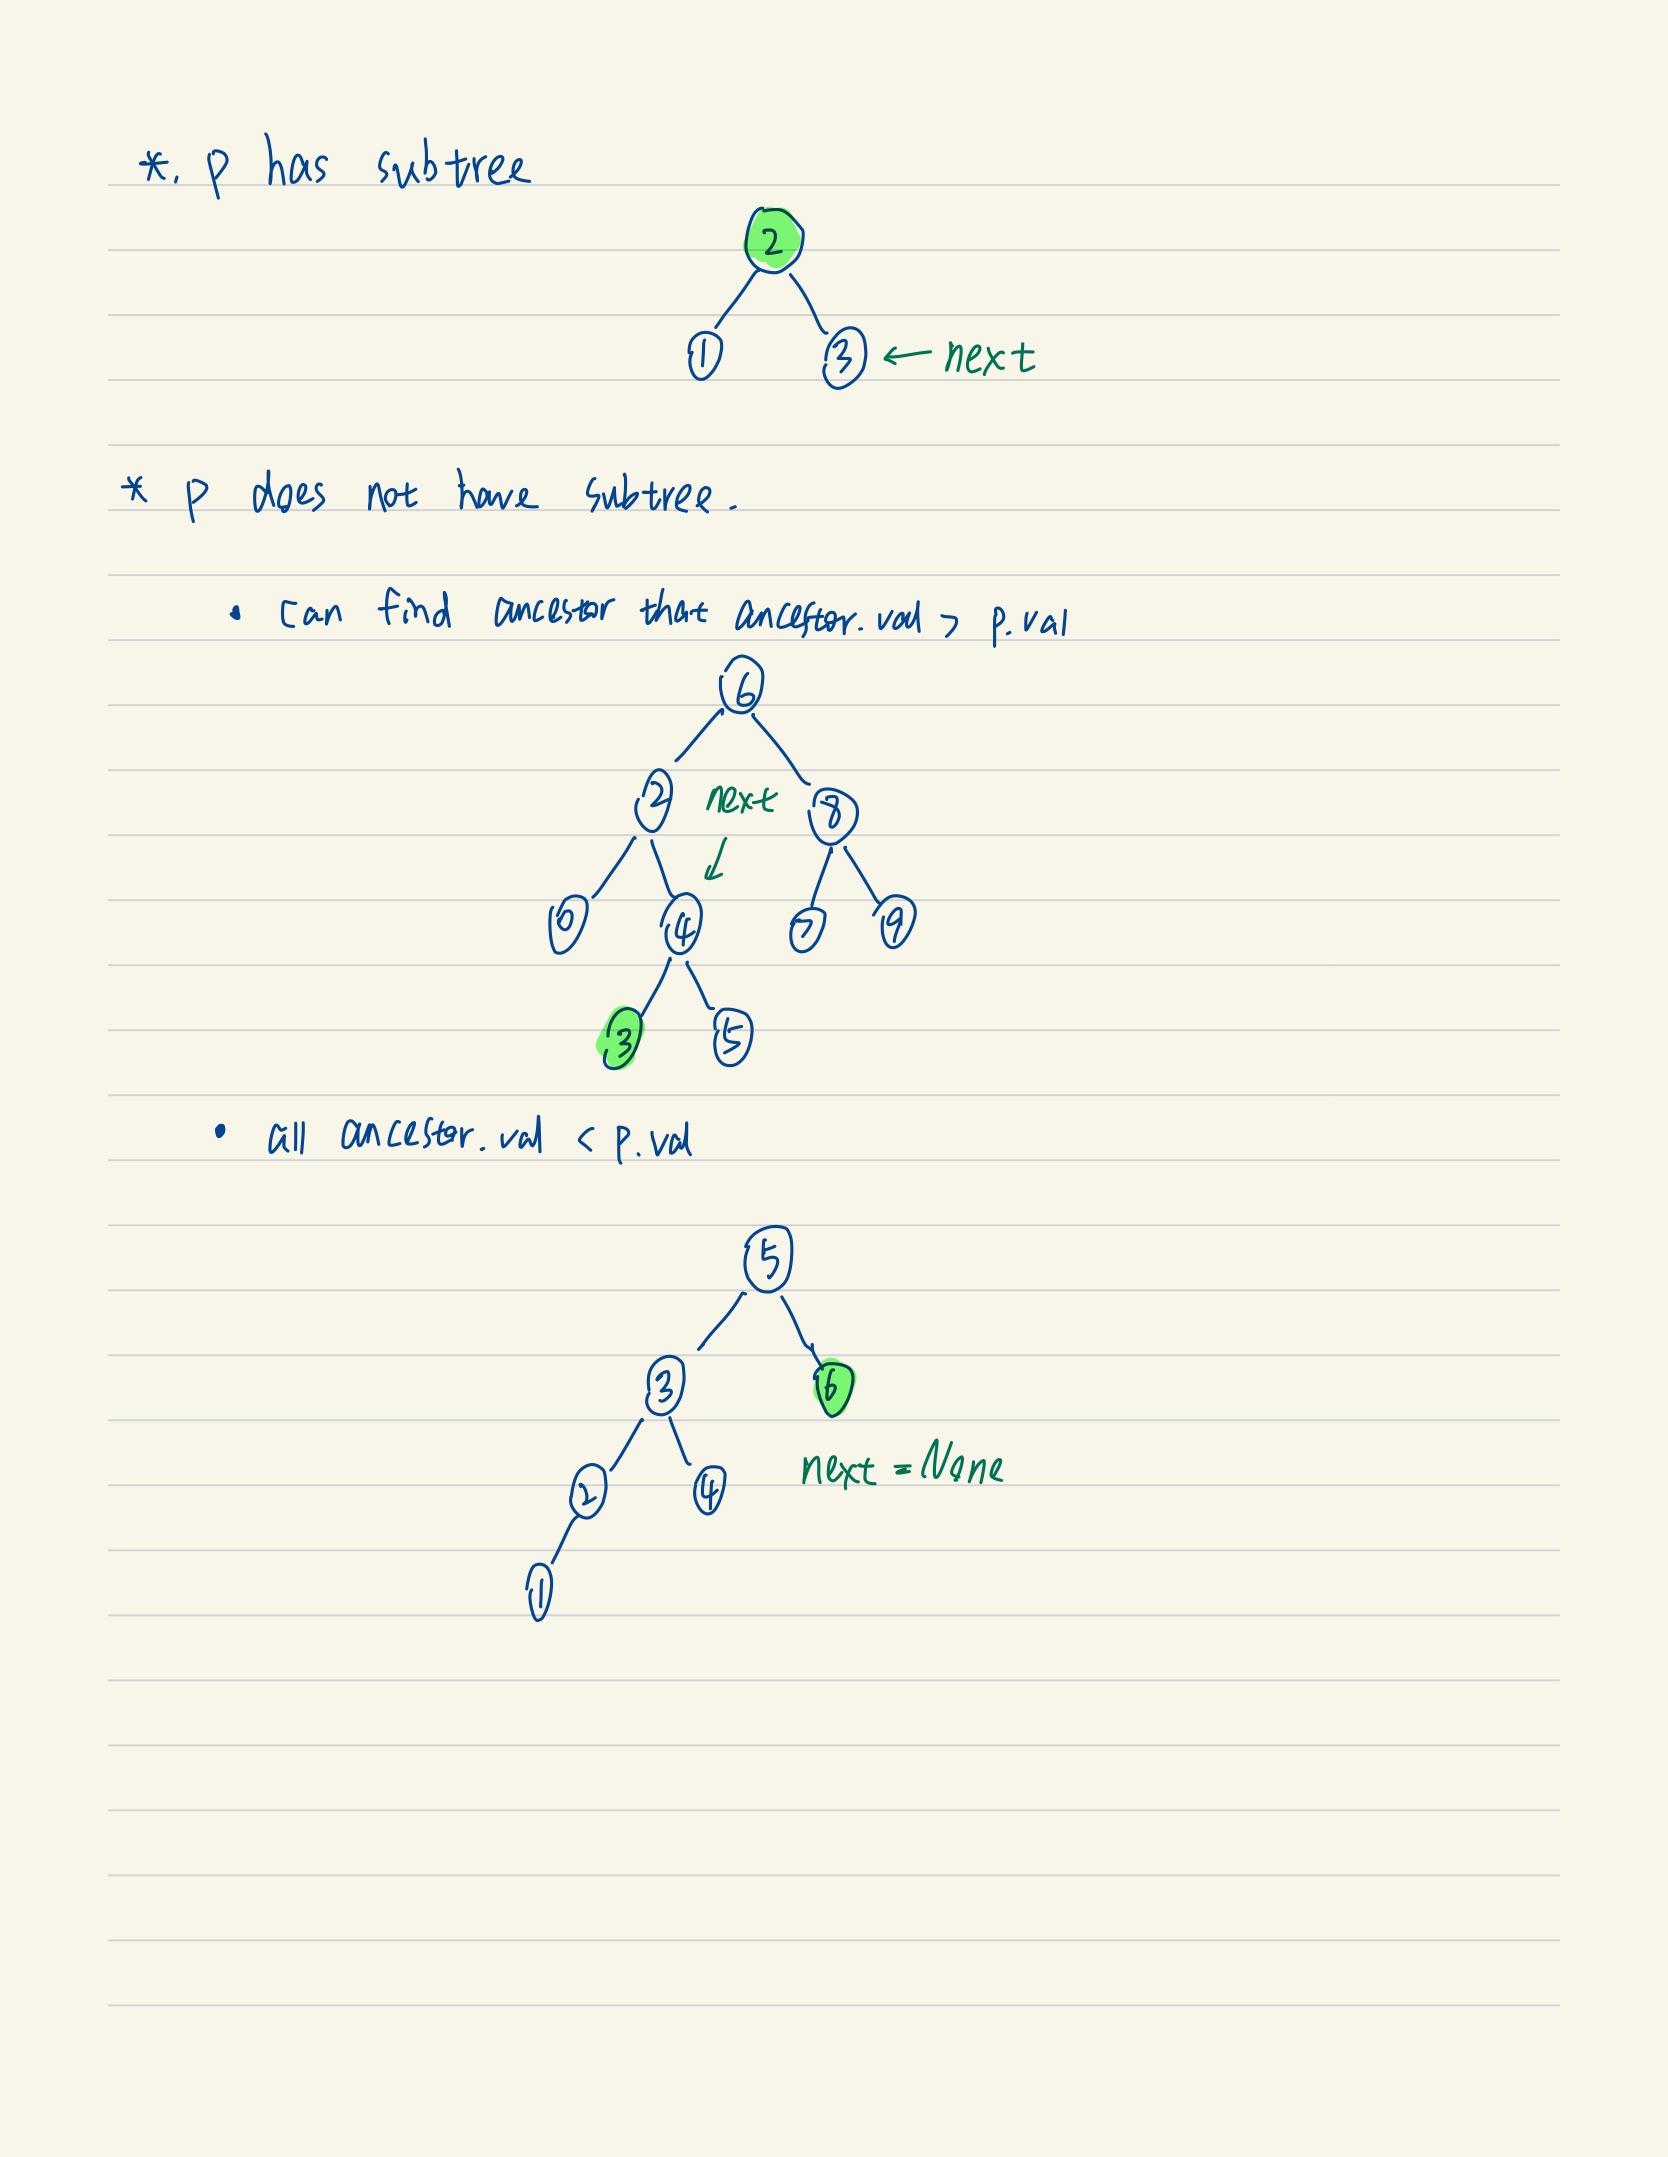 *. p has subtree
2
1 3 ← next
* p does not have subtree.
• can find ancestor that ancestor.val > p.val
6
2 next 8
0 4 7 9
3 5
• all ancestor.val < p.val
5
3 6
next = None
2 4
1